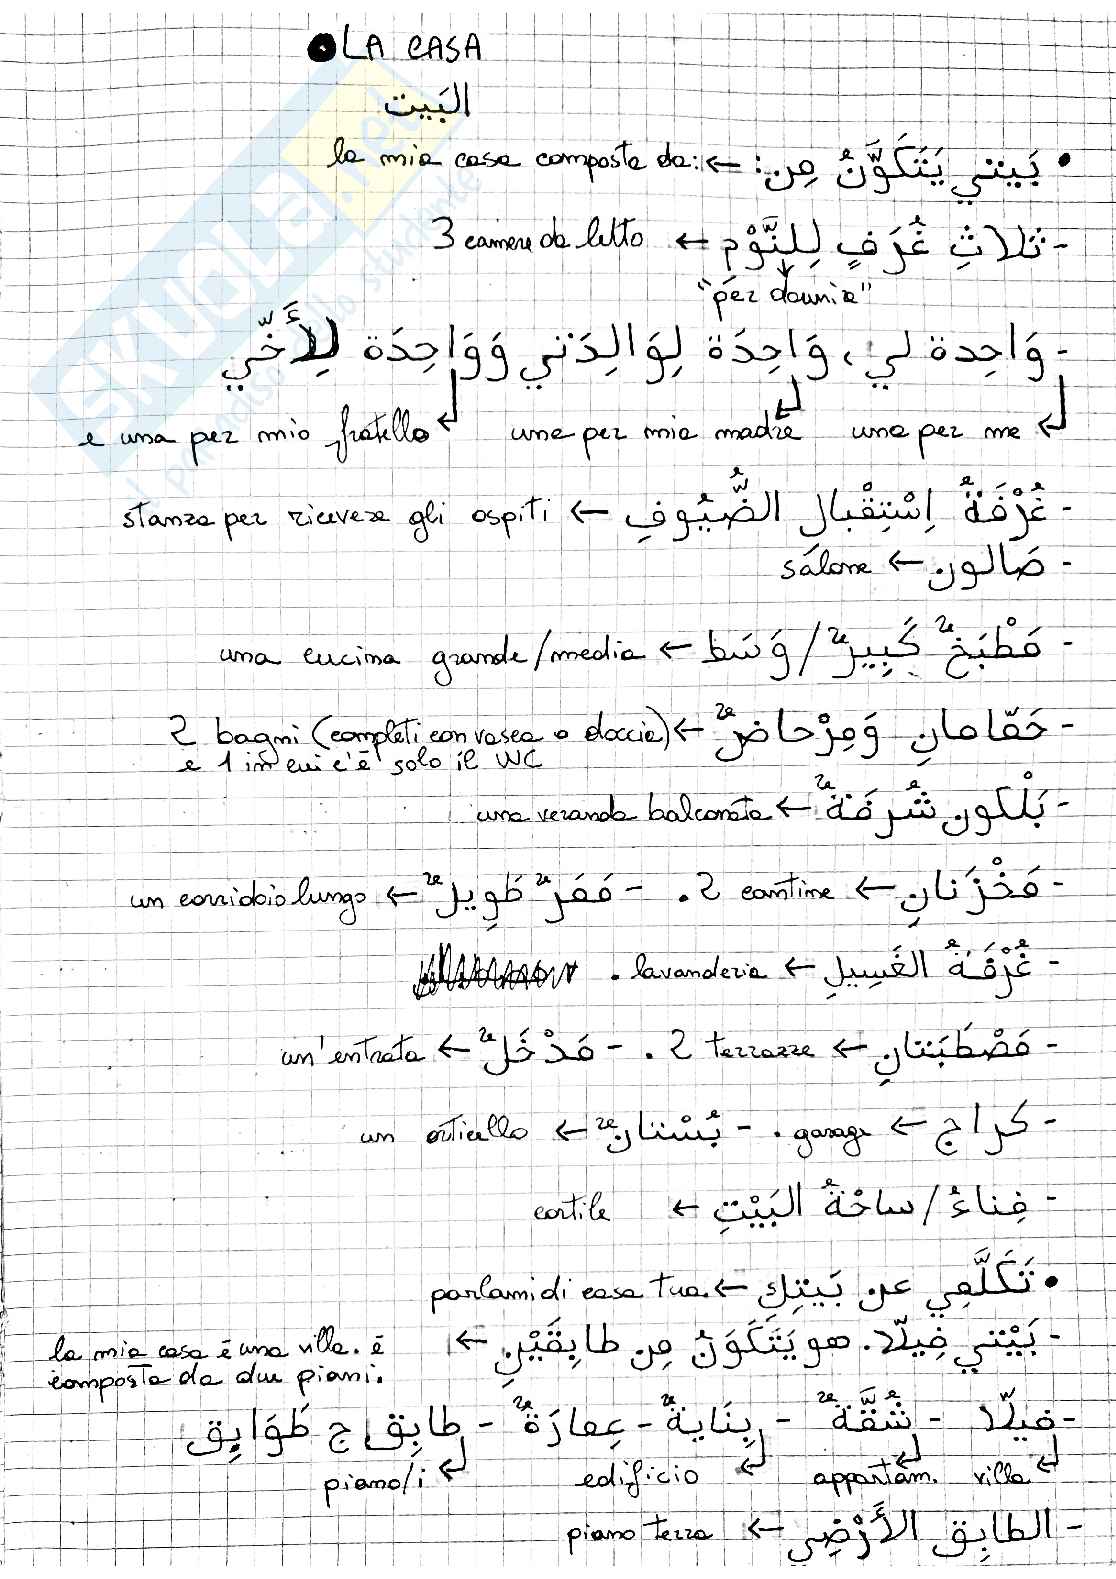 LA CASA
البَيت
• بَيتي يَتَكَوَّنُ مِن: ← la mia casa composta da:
- ثَلاثِ غُرَفٍ لِلنَّوْمِ ← 3 camere da letto
"per dormire"
- وَاحِدة لي، وَاحِدَة لِوَالِدَتي وَوَاحِدَة لِأَخّي
una per me una per mia madre e una per mio fratello
- غُرْفَةُ اِسْتِقْبال الضُّيُوفِ ← stanza per ricevere gli ospiti
- صَالون ← salone
- مَطْبَخٌ كَبِيرٌ / وَسَط ← una cucina grande/media
- حَمّامانِ وَمِرْحاضٌ ← 2 bagni (completi con vasca o doccia)
e 1 in cui c'è solo il WC
- بَلْكون شُرفَةٌ ← una veranda balconata
- مَخْزَنانِ ← 2 cantine. - مَمَرٌ طَوِيلٌ ← un corridoio lungo
- غُرْفَةُ الغَسِيلِ ← lavanderia.
- مَصْطَبَتانِ ← 2 terrazze. - مَدْخَلٌ ← un'entrata
- كراج ← garage. - بُسْتانٌ ← un orticello
- فِناءُ / ساحْةُ البَيْتِ ← cortile
• تَكَلَّمِي عن بَيتِكِ ← parlami di casa tua.
- بَيْتي فِيلّا. هو يَتَكَوَنُ مِن طابِقَيْنِ ← la mia casa è una villa. è
composta da due piani.
- فيلّا - شُقَّةٌ - بِنَايةٌ - عِمارَةٌ - طابِق ج طَوَابِق
villa appartam. edificio piano/i
- الطابِق الأَرْضِي ← piano terra